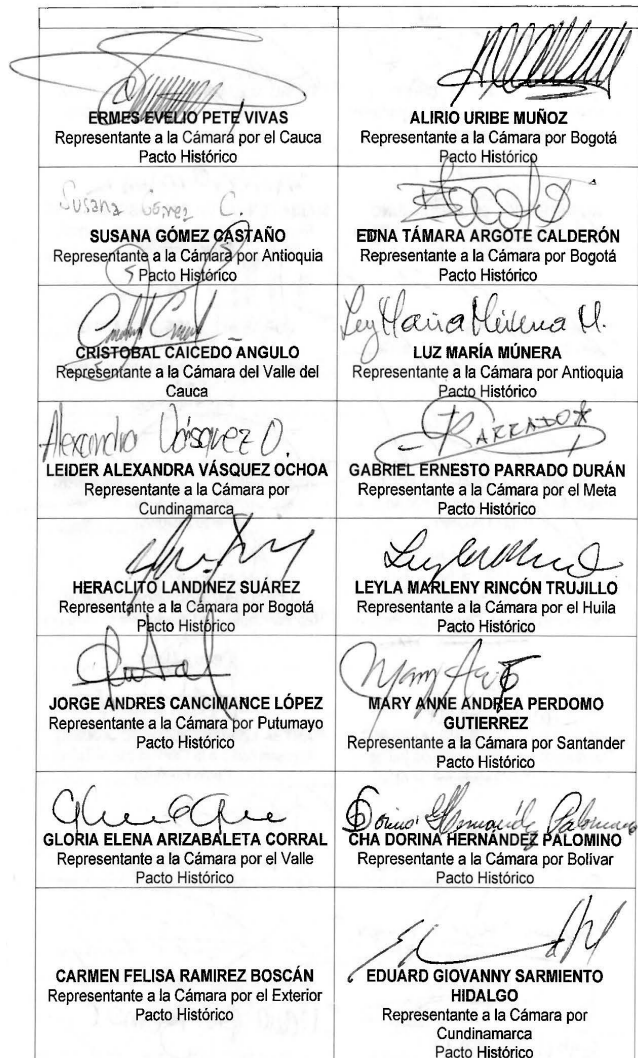 ERMES EVELIO PETE VIVAS
Representante a la Cámara por el Cauca
Pacto Histórico
ALIRIO URIBE MUÑOZ
Representante a la Cámara por Bogotá
Pacto Histórico
Susana Gómez C.
SUSANA GÓMEZ CASTAÑO
Representante a la Cámara por Antioquia
Pacto Histórico
EDNA TÁMARA ARGOTE CALDERÓN
Representante a la Cámara por Bogotá
Pacto Histórico
CRISTOBAL CAICEDO ANGULO
Representante a la Cámara del Valle del
Cauca
LUZ MARÍA MÚNERA
Representante a la Cámara por Antioquia
Pacto Histórico
Alexandra Vásquez O.
LEIDER ALEXANDRA VÁSQUEZ OCHOA
Representante a la Cámara por
Cundinamarca
PARRADO
GABRIEL ERNESTO PARRADO DURÁN
Representante a la Cámara por el Meta
Pacto Histórico
HERACLITO LANDINEZ SUÁREZ
Representante a la Cámara por Bogotá
Pacto Histórico
LEYLA MARLENY RINCÓN TRUJILLO
Representante a la Cámara por el Huila
Pacto Histórico
JORGE ANDRES CANCIMANCE LÓPEZ
Representante a la Cámara por Putumayo
Pacto Histórico
MARY ANNE ANDREA PERDOMO
GUTIERREZ
Representante a la Cámara por Santander
Pacto Histórico
GLORIA ELENA ARIZABALETA CORRAL
Representante a la Cámara por el Valle
Pacto Histórico
Dorina Hernández Palomino
CHA DORINA HERNÁNDEZ PALOMINO
Representante a la Cámara por Bolivar
Pacto Histórico
CARMEN FELISA RAMIREZ BOSCÁN
Representante a la Cámara por el Exterior
Pacto Histórico
EDUARD GIOVANNY SARMIENTO
HIDALGO
Representante a la Cámara por
Cundinamarca
Pacto Histórico